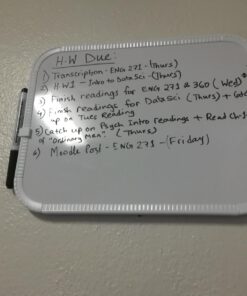 H.W Due:
1) Transcription - ENG 271 - (Thurs)
2) HW1 - Intro to Data Sci - (Thurs)
3) Finish readings for ENG 271 & 360 (Wed)
4) Finish readings for Data Sci (Thurs) +
up on Tues Reading
5) Catch up on Psych Intro readings + Read Ch.
of "Ordinary Men" (Thurs)
6) Moodle Post - ENG 271 - (Friday)